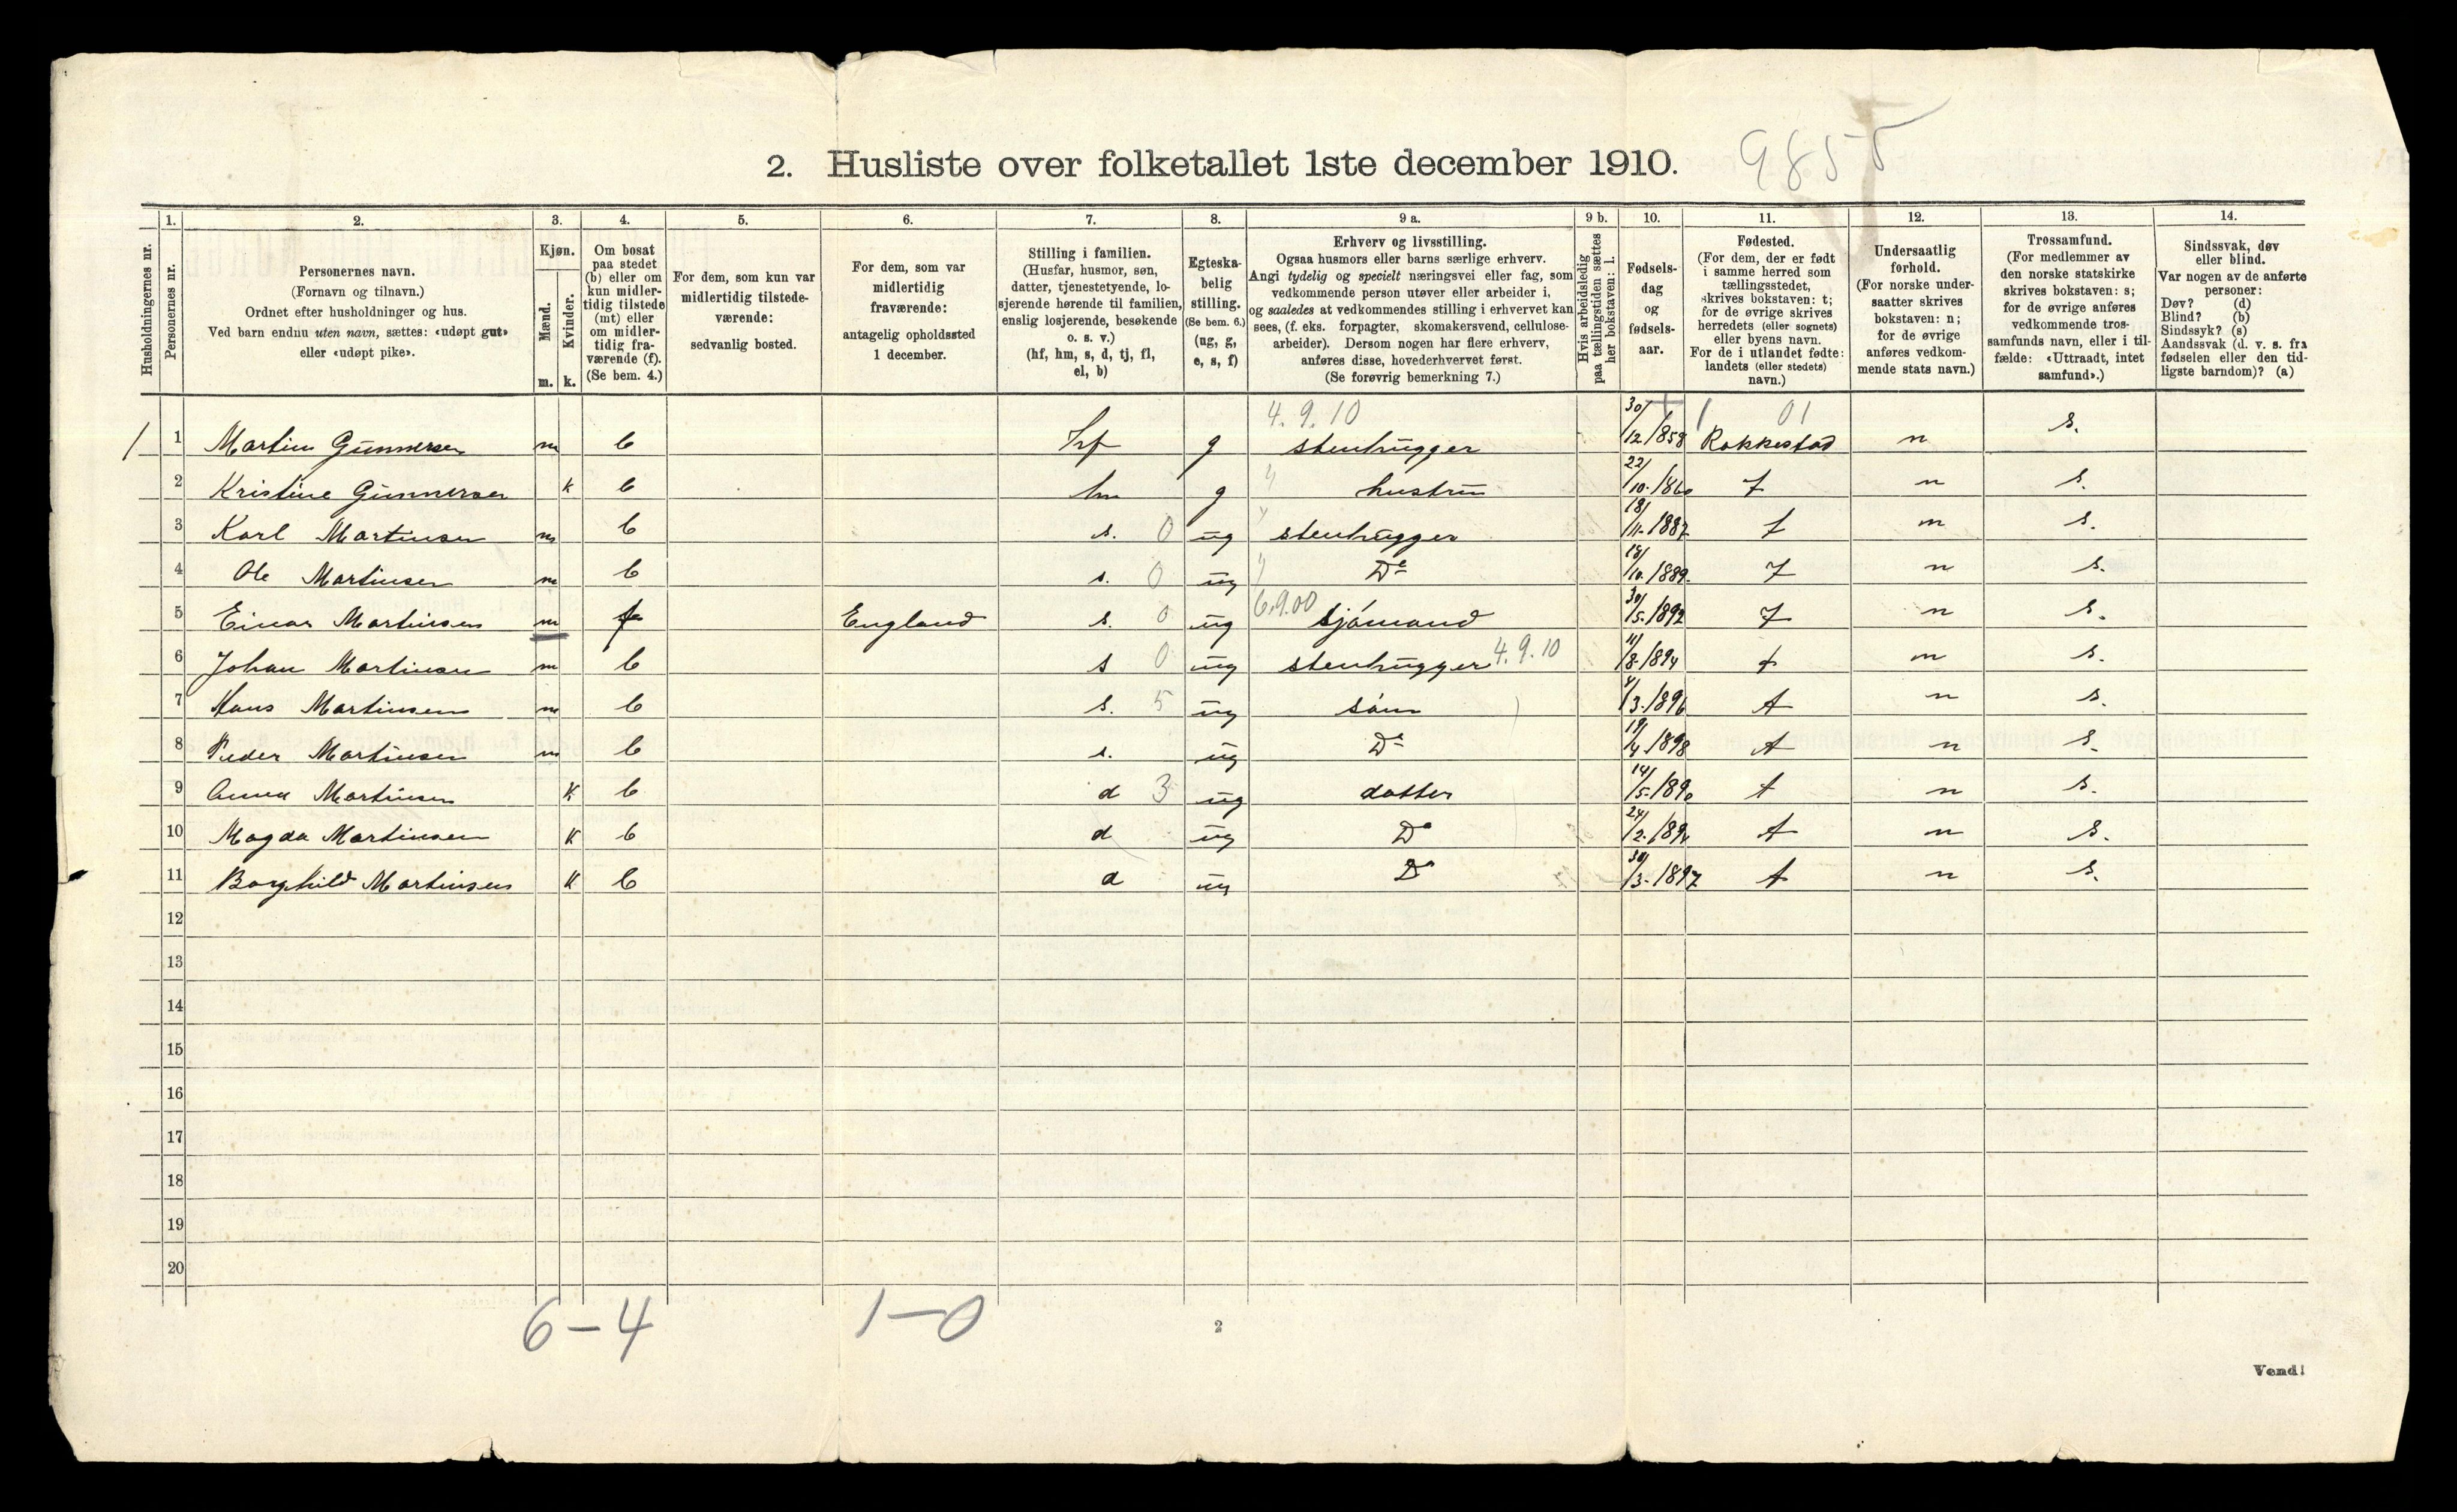 9855
2. Husliste over folketallet 1ste december 1910.
Husholdningernes nr.
1. Personernes nr.
2. Personernes navn.
(Fornavn og tilnavn.)
Ordnet efter husholdninger og hus.
Ved barn endnu uten navn, sættes: «udøpt gut»
eller «udøpt pike».
3. Kjøn.
Mænd. Kvinder.
m. k.
4. Om bosat
paa stedet
(b) eller om
kun midler-
tidig tilstede
(mt) eller
om midler-
tidig fra-
værende (f).
(Se bem. 4.)
5. For dem, som kun var
midlertidig tilstede-
værende:
sedvanlig bosted.
6. For dem, som var
midlertidig
fraværende:
antagelig opholdssted
1 december.
7. Stilling i familien.
(Husfar, husmor, søn,
datter, tjenestetyende, lo-
sjerende hørende til familien,
enslig losjerende, besøkende
o. s. v.)
(hf, hm, s, d, tj, fl,
el, b)
8. Egteska-
belig
stilling.
(Se bem. 6.)
(ug, g,
e, s, f)
9 a. Erhverv og livsstilling.
Ogsaa husmors eller barns særlige erhverv.
Angi tydelig og specielt næringsvei eller fag, som
vedkommende person utøver eller arbeider i,
og saaledes at vedkommendes stilling i erhvervet kan
sees, (f. eks. forpagter, skomakersvend, cellulose-
arbeider). Dersom nogen har flere erhverv,
anføres disse, hovederhvervet først.
(Se forøvrig bemerkning 7.)
9 b. Hvis arbeidsledig
paa tællingstiden sættes
her bokstaven: l.
10. Fødsels-
dag
og
fødsels-
aar.
11. Fødested.
(For dem, der er født
i samme herred som
tællingsstedet,
skrives bokstaven: t;
for de øvrige skrives
herredets (eller sognets)
eller byens navn.
For de i utlandet fødte:
landets (eller stedets)
navn.)
12. Undersaatlig
forhold.
(For norske under-
saatter skrives
bokstaven: n;
for de øvrige
anføres vedkom-
mende stats navn.)
13. Trossamfund.
(For medlemmer av
den norske statskirke
skrives bokstaven: s;
for de øvrige anføres
vedkommende tros-
samfunds navn, eller i til-
fælde: «Uttraadt, intet
samfund».)
14. Sindssvak, døv
eller blind.
Var nogen av de anførte
personer:
Døv? (d)
Blind? (b)
Sindssyk? (s)
Aandssvak (d. v. s. fra
fødselen eller den tid-
ligste barndom)? (a)
4.9.10 01
1 1 Martin Gunnersen m b hf g stenhugger 30/12 1858 Rakkestad n s.
2 Kristine Gunnersen k b hm g hustru 22/10. 1860 t n s.
3 Karl Martinsen m b s. 0 ug stenhugger 18/11. 1887 t n s.
4 Ole Martinsen m b s. 0 ug Do 18/10. 1889. t n s.
5 Einar Martinsen m f England s. 0 ug 6.9.00 sjømand 30/5. 1892 t n s.
6 Johan Martinsen m b s 0 ug stenhugger 4.9.10 11/8. 1894 t n s.
7 Hans Martinsen m b s. 5 ug søn 4/3. 1896 t n s.
8 Peder Martinsen m b s. ug Do 19/4. 1898 t n s.
9 Anna Martinsen k b d 3 ug datter 14/5. 1890 t n s.
10 Magda Martinsen k b d ug Do 24/2. t n s.
11 Borghild Martinsen k b d ug Do 30/3. 1897 t n s.
12
13
14
15
16
17
18
19
20
6-4 1-0
2
Vend!